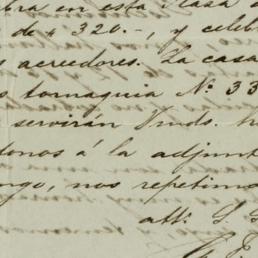 bra en esta Plasa d
de $ 320.-, y celebr
s acreedores. La casa
s tornaguia Nº 33
servirán Vmds. h
donos á la adjunt
ngo, nos repetimo
att: S. S.